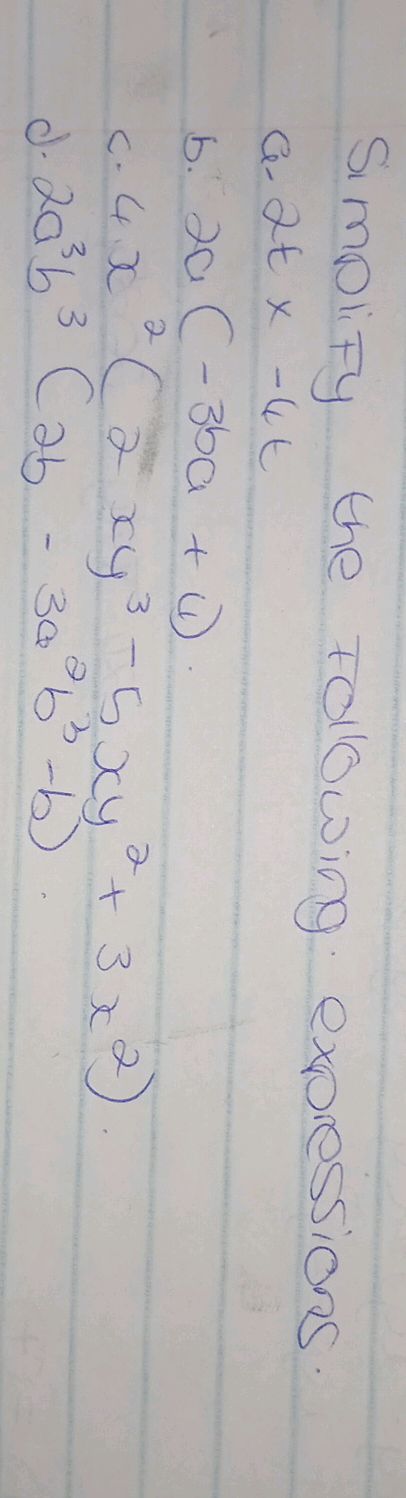 Simplify the following expressions.
a. 2t x -4t
b. 2a (-3ba + 4).
c. 4x² (2xy³ - 5xy² + 3x²).
d. 2a³b³ (2b - 3a²b³ - b).